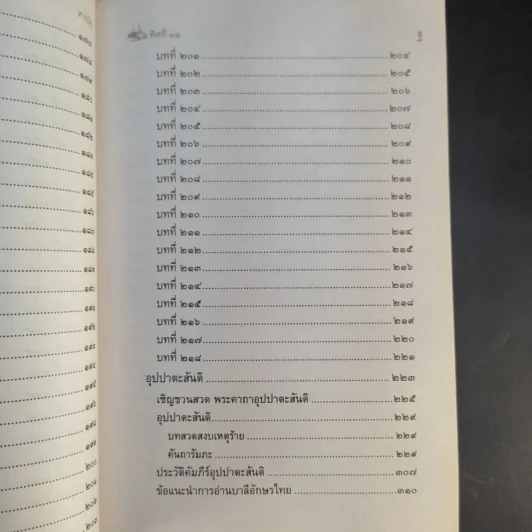 ทิศที่ ๑๑
บทที่ ๒๐๑ ๒๐๔
บทที่ ๒๐๒ ๒๐๕
บทที่ ๒๐๓ ๒๐๖
บทที่ ๒๐๔ ๒๐๗
บทที่ ๒๐๕ ๒๐๘
บทที่ ๒๐๖ ๒๐๙
บทที่ ๒๐๗ ๒๑๐
บทที่ ๒๐๘ ๒๑๑
บทที่ ๒๐๙ ๒๑๒
บทที่ ๒๑๐ ๒๑๓
บทที่ ๒๑๑ ๒๑๔
บทที่ ๒๑๒ ๒๑๕
บทที่ ๒๑๓ ๒๑๖
บทที่ ๒๑๔ ๒๑๗
บทที่ ๒๑๕ ๒๑๘
บทที่ ๒๑๖ ๒๑๙
บทที่ ๒๑๗ ๒๒๐
บทที่ ๒๑๘ ๒๒๑
อุปปาตะสันติ ๒๒๓
เชิญชวนสวด พระคาถาอุปปาตะสันติ ๒๒๕
อุปปาตะสันติ ๒๒๙
บทสวดสงบเหตุร้าย ๒๒๙
คันถารัมภะ ๒๒๙
ประวัติคัมภีร์อุปปาตะสันติ ๓๐๗
ข้อแนะนำการอ่านบาลีอักษรไทย ๓๑๐